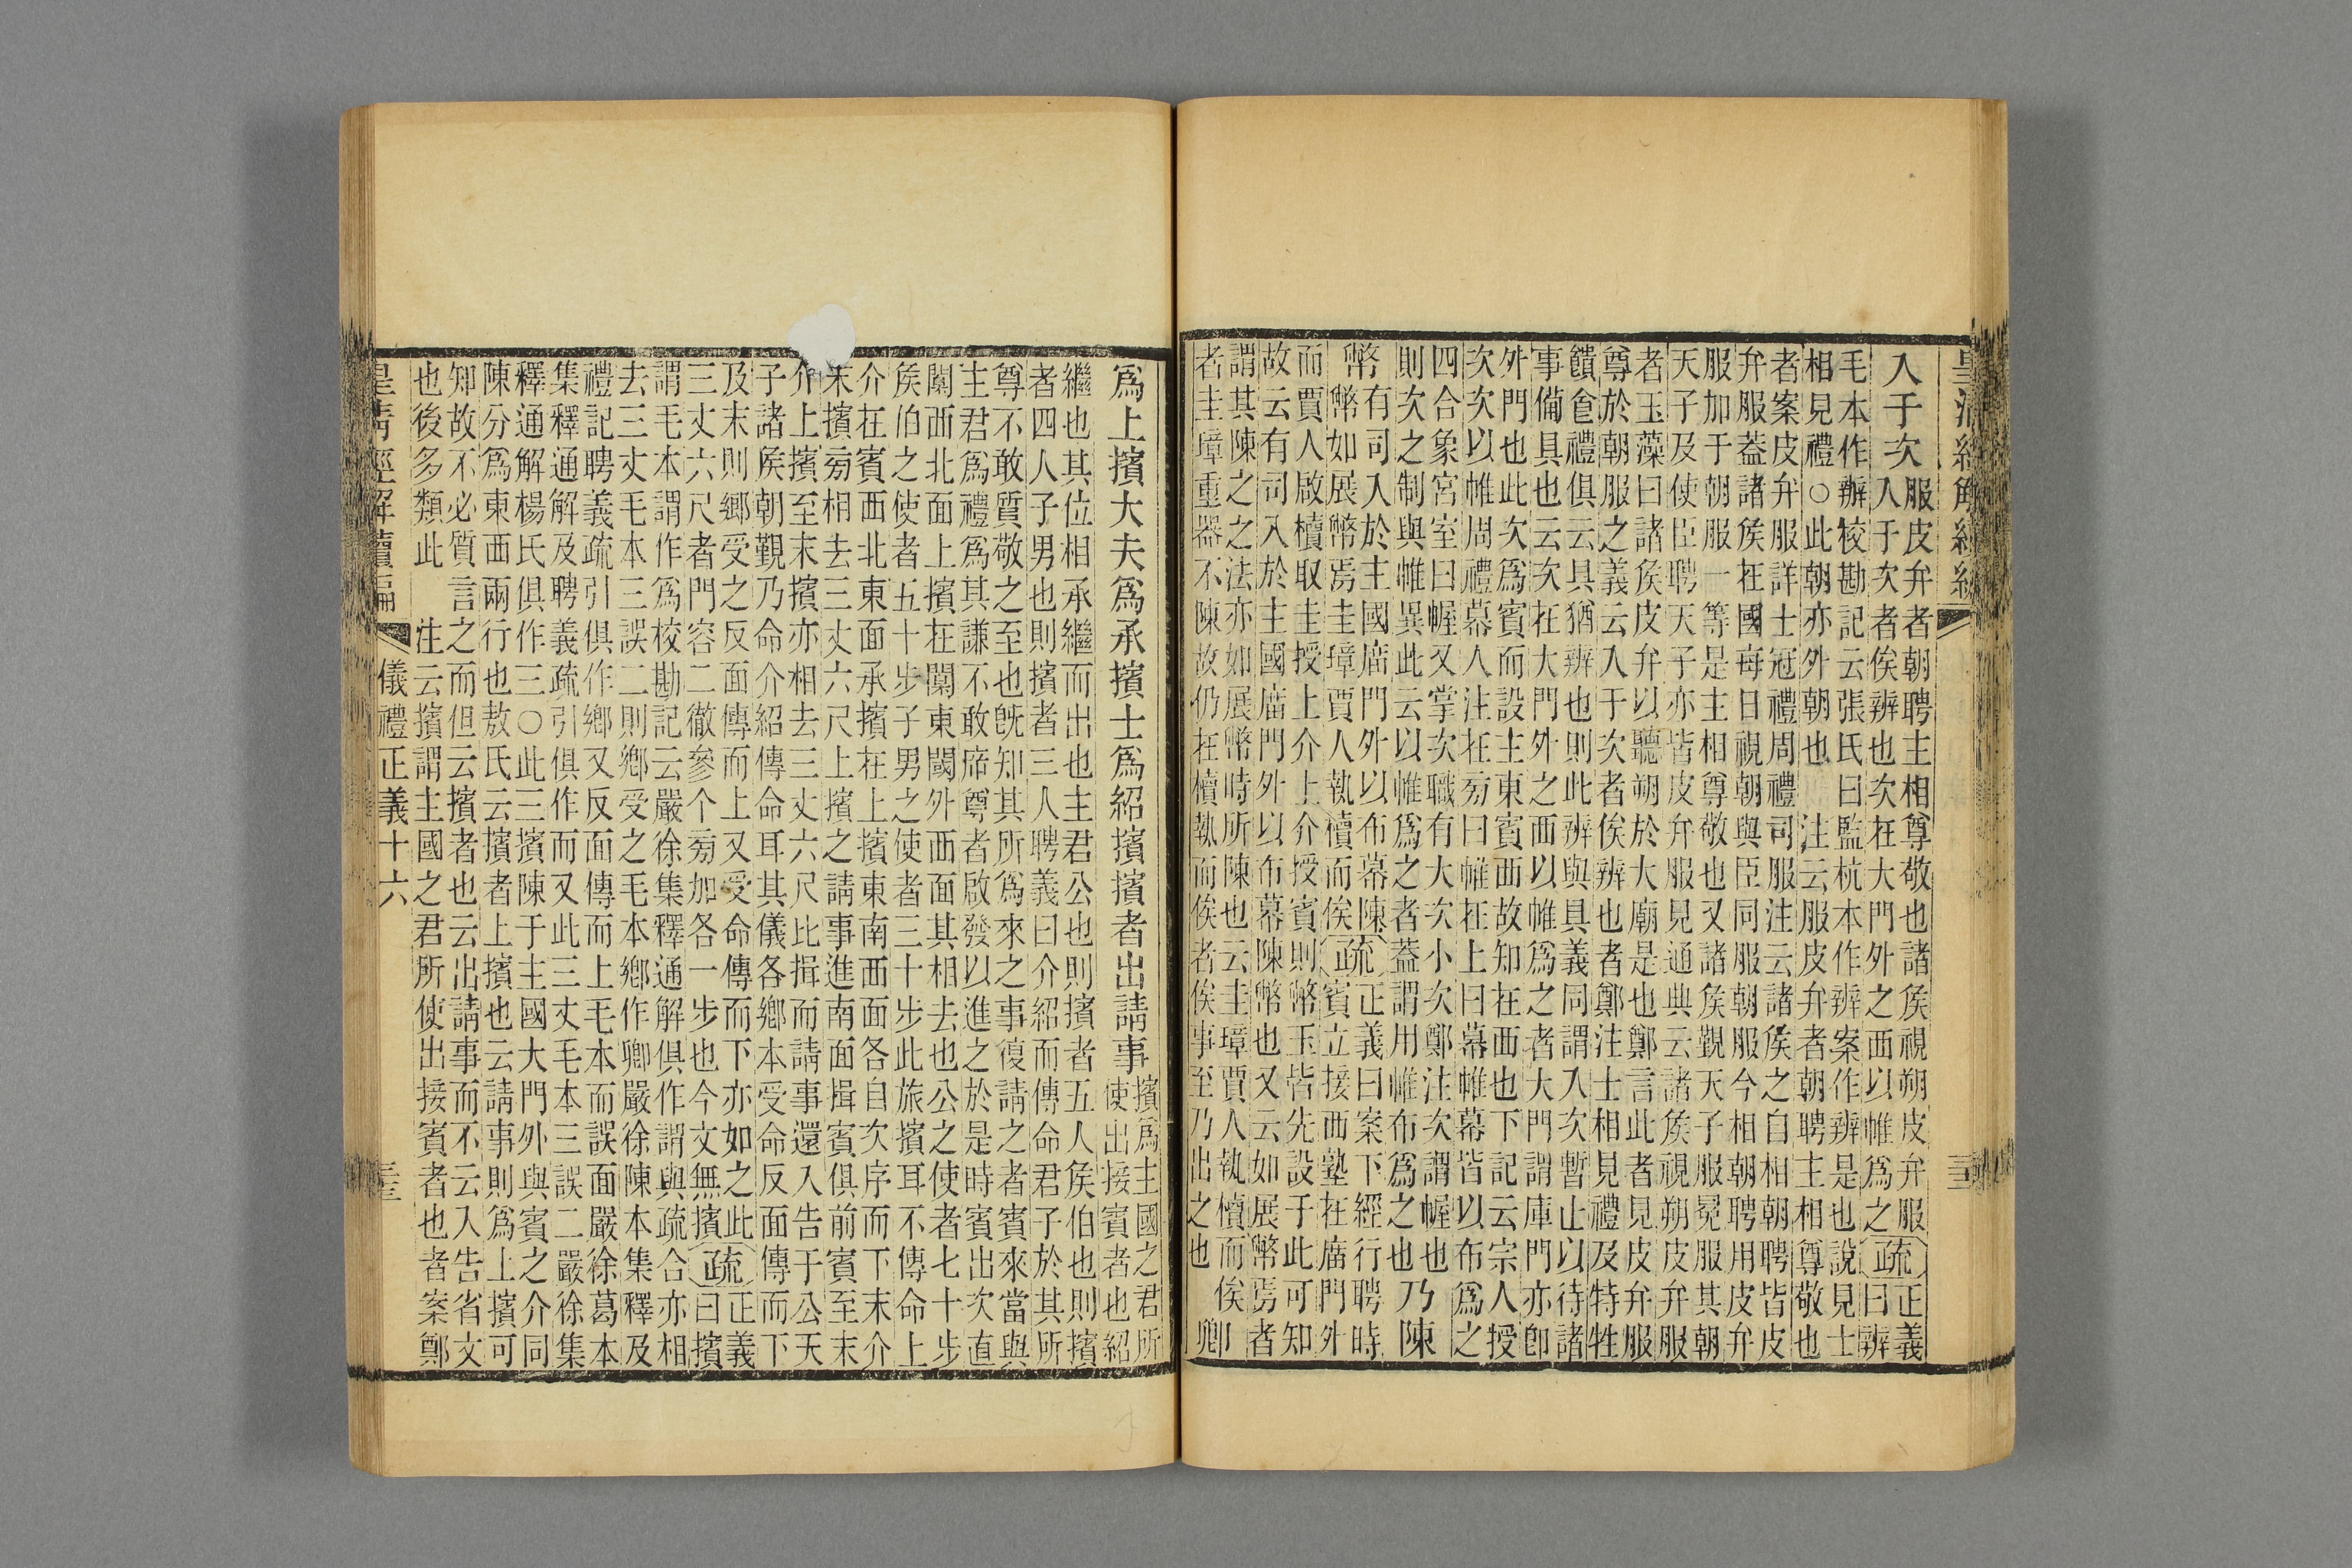 皇清經解續編
三三
入于次服皮弁者朝聘主相尊敬也諸矦視朔皮弁服 正義
入于次者俟辨也次在大門外之西以帷爲之 疏 曰辨
毛本作辦校勘記云張氏曰監杭本作辨案作辨是也說見士
相見禮○此朝亦外朝也 注云服皮弁者朝聘主相尊敬也
者案皮弁服詳士冠禮周禮司服注云諸矦之自相朝聘皆皮
弁服蓋諸矦在國每日視朝與臣同服朝服今相朝聘用皮弁
服加于朝服一等是主相尊敬也又諸矦覲天子服冕服其朝
天子及使臣聘天子亦皆皮弁服見通典云諸矦視朔皮弁服
者玉藻曰諸矦皮弁以聽朔於大廟是也鄭言此者見皮弁服
尊於朝服之義云入于次者俟辨也者鄭注士相見禮及特牲
饋食禮俱云具猶辨也則此辨與具義同謂入次暫止以待諸
事備具也云次在大門外之西以帷爲之者大門謂庫門亦卽
外門也此次爲賓而設主東賓西故知在西也下記云宗人授
次次以帷周禮幕人注在旁曰帷在上曰幕帷幕皆以布爲之
四合象宮室曰幄又掌次職有大次小次鄭注次謂幄也
則次之制與帷異此云以帷爲之者蓋謂用帷布爲之也
乃陳
幣有司入於主國廟門外以布幕陳 正義曰案下經行聘時
幣如展幣焉圭璋賈人執櫝而俟 疏 賓立接西塾在廟門外
而賈人啟櫝取圭授上介上介授賓則幣玉皆先設于此可知
故云有司入於主國廟門外以布幕陳幣也又云如展幣焉者
謂其陳之之法亦如展幣時所陳也云圭璋賈人執櫝而俟
者圭璋重器不陳故仍在櫝執而俟者俟事至乃出之也
卿
爲上擯大夫爲承擯士爲紹擯擯者出請事擯爲主國之君所
使出接賓者也紹
繼也其位相承繼而出也主君公也則擯者五人矦伯也則擯
者四人子男也則擯者三人聘義曰介紹而傳命君子於其所
尊不敢質敬之至也旣知其所爲來之事復請之者賓來當與
主君爲禮爲其謙不敢席尊者啟發以進之於是時賓出次直
闑西北面上擯在闑東閾外西面其相去也公之使者七十步
矦伯之使者五十步子男之使者三十步此旅擯耳不傳命上
介在賓西北東面承擯在上擯東南西面各自次序而下末介
末擯旁相去三丈六尺上擯之請事進南面揖賓俱前賓至末
介上擯至末擯亦相去三丈六尺比揖而請事還入告于公天
子諸矦朝覲乃命介紹傳命耳其儀各鄉本受命反面傳而下
及末則鄉受之反面傳而上又受命傳而下亦如之此 正義
三丈六尺者門容二徹參个旁加各一步也今文無擯 疏 曰擯
謂毛本謂作爲校勘記云嚴徐集釋通解俱作謂與疏合亦相
去三丈毛本三誤二則鄉受之毛本鄉作卿嚴徐陳本集釋及
禮記聘義疏引俱作鄉又反面傳而上毛本而誤面嚴徐葛本
集釋通解及聘義疏引俱作而又此三丈毛本三誤二嚴徐集
釋通解楊氏俱作三○此三擯陳于主國大門外與賓之介同
陳分爲東西兩行也敖氏云擯者上擯也云請事則爲上擯可
知故不必質言之而但云擯者也云出請事而不云入告省文
也後多類此 注云擯謂主國之君所使出接賓者也者案鄭
皇清經解續編 儀禮正義十六 三三